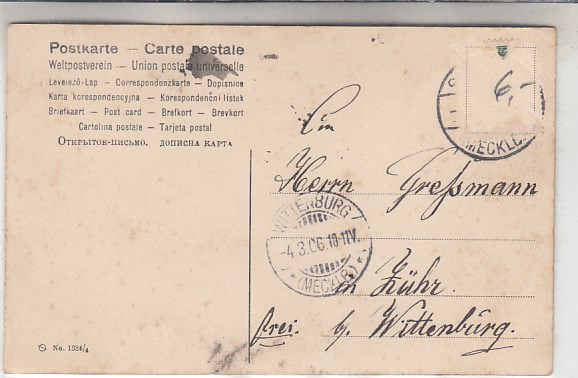 Postkarte — Carte postale
Weltpostverein — Union postale universelle
Levelező-Lap — Correspondenzkarte — Dopisnice
Karta korespondencyjna — Korespondenční lístek
Briefkaart — Post card — Brefkort — Brevkort
Cartolina postale — Tarjeta postal
Открытое-письмо. дописна карта
6,-
(MECKLB
Ein
Herrn Greßmann
WITTENBURG
-4.3.06.10-11V.
*(MECKLB)*
in Zühr.
frei. b. Wittenburg.
No. 1324/4